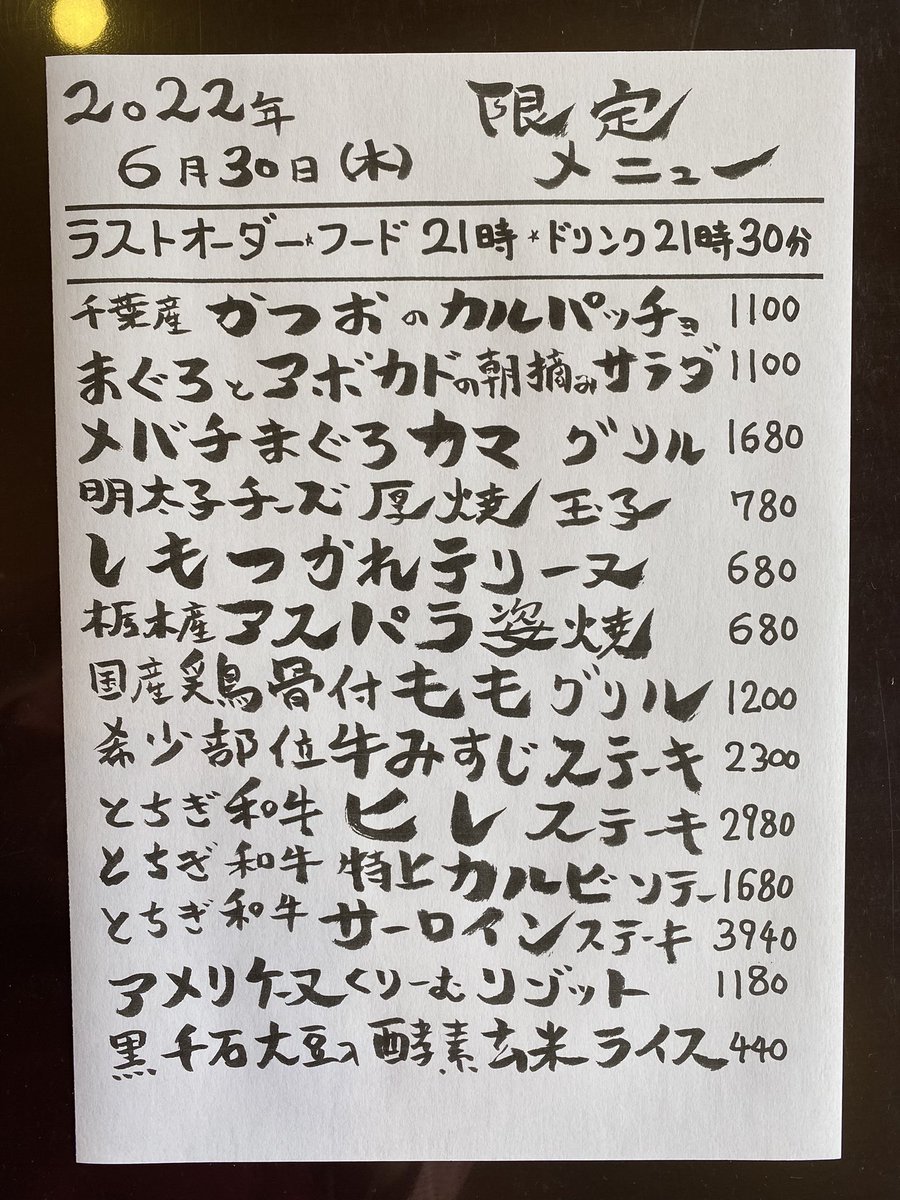 2022年
6月30日(木)
限定
メニュー
ラストオーダー*フード 21時*ドリンク21時30分
千葉産 かつおのカルパッチョ 1100
まぐろとアボカドの朝摘みサラダ 1100
メバチまぐろカマ グリル 1680
明太子チーズ 厚焼玉子 780
しもつかれテリーヌ 680
栃木産アスパラ姿焼 680
国産 鶏骨付ももグリル 1200
希少部位牛みすじステーキ 2300
とちぎ和牛 ヒレステーキ 2980
とちぎ和牛 特上カルビソテー 1680
とちぎ和牛 サーロインステーキ 3940
アメリケーヌくりーむリゾット 1180
黒千石大豆入酵素玄米ライス 440